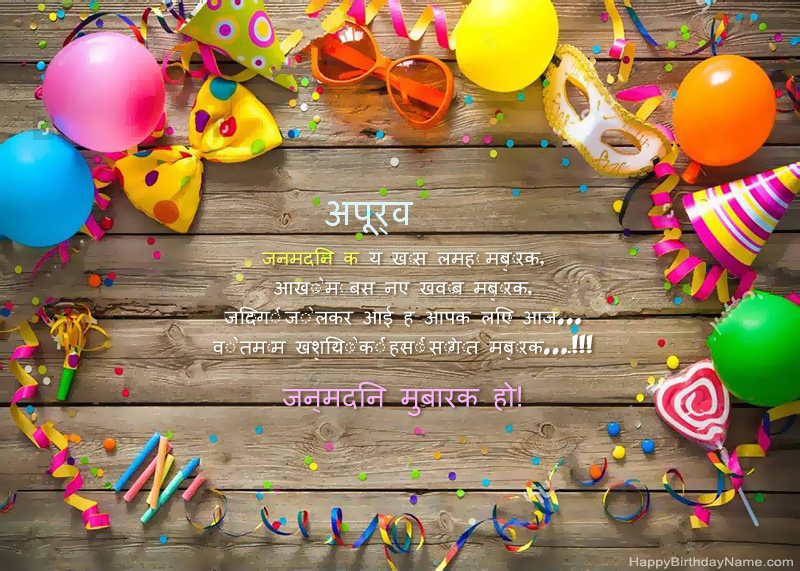 अपूर्व
जनमदिन क य ख़ास लमहा मुबारक,
आँखों में बसे नए ख्वाब मुबारक,
जिंदगी जो लेकर आई है आपके लिए आज...
वो तमाम खुशियों की हंसी सौगात मुबारक...!!!
जन्मदिन मुबारक हो!
HappyBirthdayName.com